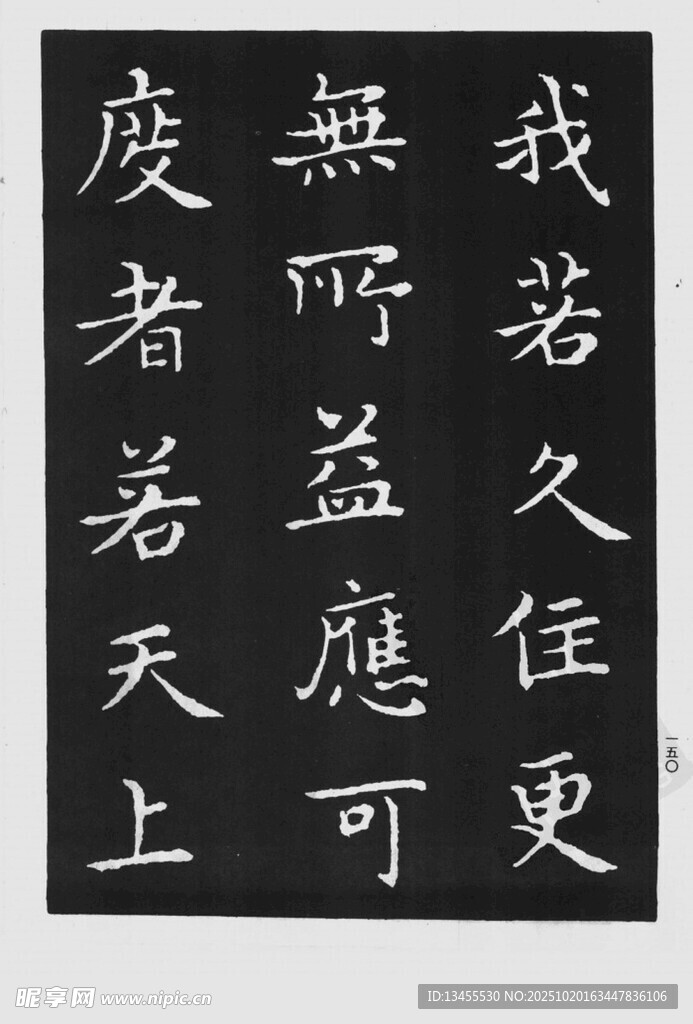 我若久住更
無所益應可
度者若天上
一五〇
昵享网 www.nipic.cn
ID:13455530 NO:20251020163447836106